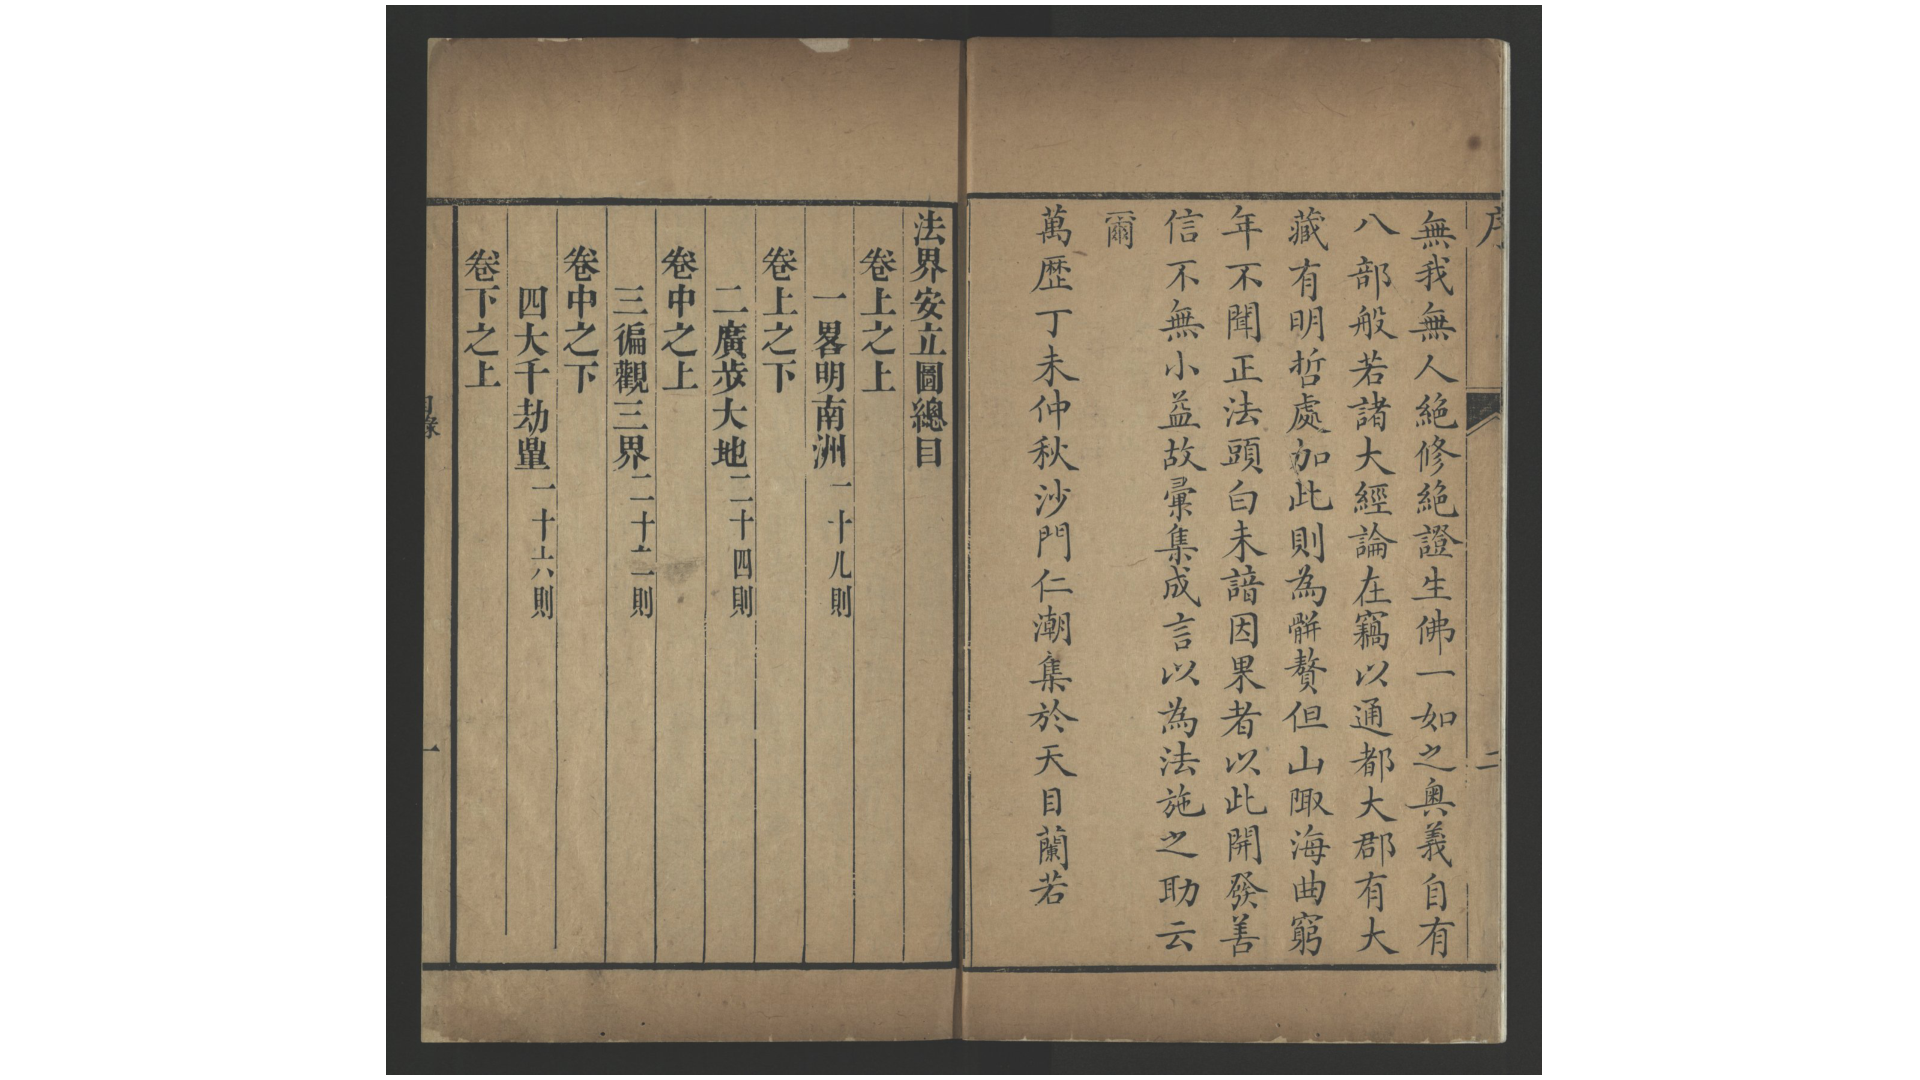 序
二
無我無人絕修絕證生佛一如之奧義自有
八部般若諸大經論在竊以通都大郡有大
藏有明哲處加此則為骿贅但山陬海曲窮
年不聞正法頭白未諳因果者以此開發善
信不無小益故彙集成言以為法施之助云
爾
萬歷丁未仲秋沙門仁潮集於天目蘭若
法界安立圖總目
卷上之上
一畧明南洲一十九則
卷上之下
二廣步大地二十四則
卷中之上
三徧觀三界二十二則
卷中之下
四大千劫量一十六則
卷下之上
目錄
一